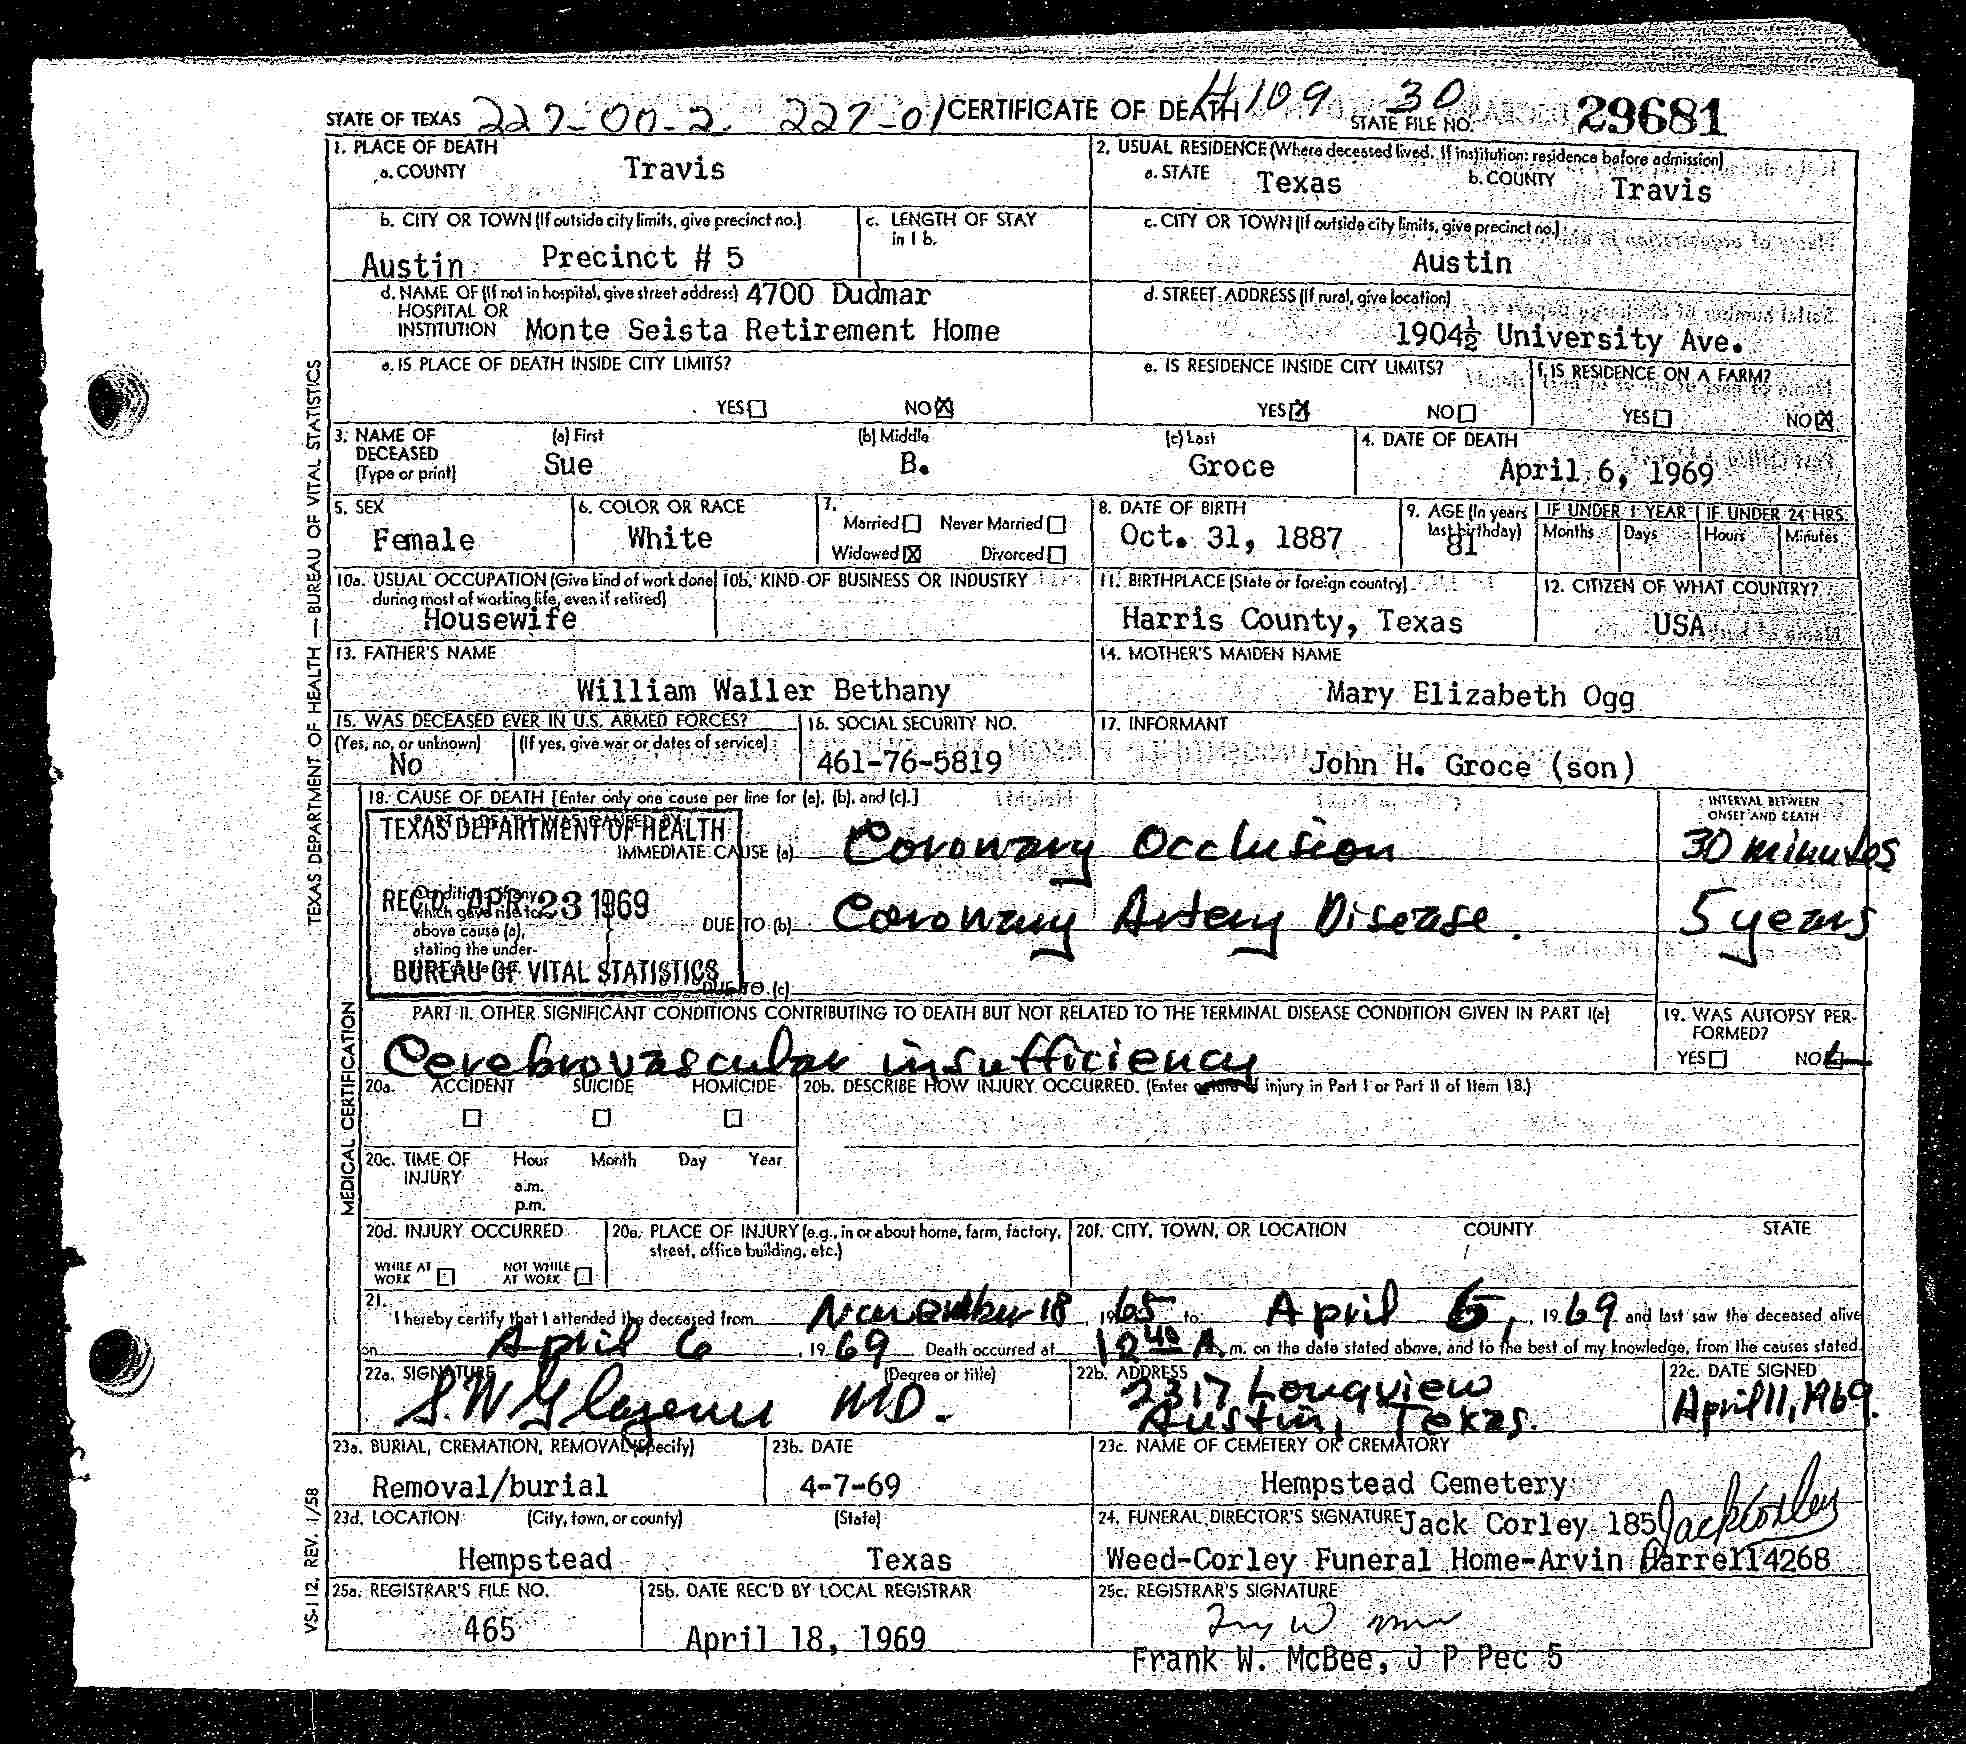 STATE OF TEXAS 227-00-2 227-01 CERTIFICATE OF DEATH 4109 30 STATE FILE NO. 29681
1. PLACE OF DEATH
a. COUNTY Travis
2. USUAL RESIDENCE (Where deceased lived. If institution: residence before admission)
a. STATE Texas b. COUNTY Travis
b. CITY OR TOWN (If outside city limits, give precinct no.) Austin Precinct # 5
c. LENGTH OF STAY in 1 b.
c. CITY OR TOWN (If outside city limits, give precinct no.) Austin
d. NAME OF (If not in hospital, give street address) 4700 Dudmar
HOSPITAL OR
INSTITUTION Monte Seista Retirement Home
d. STREET ADDRESS (If rural, give location)
1904½ University Ave.
e. IS PLACE OF DEATH INSIDE CITY LIMITS?
YES NO
e. IS RESIDENCE INSIDE CITY LIMITS?
YES NO
f. IS RESIDENCE ON A FARM?
YES NO
3. NAME OF DECEASED (Type or print)
(a) First (b) Middle (c) Last
Sue B. Groce
4. DATE OF DEATH
April 6, 1969
5. SEX
Female
6. COLOR OR RACE
White
7.
Married Never Married
Widowed Divorced
8. DATE OF BIRTH
Oct. 31, 1887
9. AGE (In years last birthday)
81
IF UNDER 1 YEAR IF UNDER 24 HRS.
Months Days Hours Minutes
10a. USUAL OCCUPATION (Give kind of work done
during most of working life, even if retired)
Housewife
10b. KIND OF BUSINESS OR INDUSTRY
11. BIRTHPLACE (State or foreign country)
Harris County, Texas
12. CITIZEN OF WHAT COUNTRY?
USA
13. FATHER'S NAME
William Waller Bethany
14. MOTHER'S MAIDEN NAME
Mary Elizabeth Ogg
15. WAS DECEASED EVER IN U.S. ARMED FORCES?
(Yes, no, or unknown) (If yes, give war or dates of service)
No
16. SOCIAL SECURITY NO.
461-76-5819
17. INFORMANT
John H. Groce (son)
18. CAUSE OF DEATH [Enter only one cause per line for (a), (b), and (c).]
INTERVAL BETWEEN
ONSET AND DEATH
TEXAS DEPARTMENT OF HEALTH
IMMEDIATE CAUSE (a) Coronary Occlusion 30 minutes
REC'D APR 23 1969
which gave rise to
above cause (a),
stating the under-
DUE TO (b) Coronary Artery Disease. 5 years
BUREAU OF VITAL STATISTICS
DUE TO (c)
PART II. OTHER SIGNIFICANT CONDITIONS CONTRIBUTING TO DEATH BUT NOT RELATED TO THE TERMINAL DISEASE CONDITION GIVEN IN PART I(a)
Cerebrovascular insufficiency
19. WAS AUTOPSY PER-
FORMED?
YES NO
20a. ACCIDENT SUICIDE HOMICIDE
20b. DESCRIBE HOW INJURY OCCURRED. (Enter nature of injury in Part I or Part II of Item 18.)
20c. TIME OF INJURY Hour Month Day Year
a.m.
p.m.
20d. INJURY OCCURRED
WHILE AT WORK NOT WHILE AT WORK
20e. PLACE OF INJURY (e.g., in or about home, farm, factory,
street, office building, etc.)
20f. CITY, TOWN, OR LOCATION COUNTY STATE
21.
I hereby certify that I attended the deceased from November 18, 1965 to April 6, 1969 and last saw the deceased alive
on April 6, 1969 Death occurred at 12 40 A. m. on the date stated above, and to the best of my knowledge, from the causes stated.
22a. SIGNATURE (Degree or title)
S.W. Glazener MD.
22b. ADDRESS
2317 Longview
Austin, Texas.
22c. DATE SIGNED
April 11, 1969.
23a. BURIAL, CREMATION, REMOVAL (Specify)
Removal/burial
23b. DATE
4-7-69
23c. NAME OF CEMETERY OR CREMATORY
Hempstead Cemetery
23d. LOCATION (City, town, or county) (State)
Hempstead Texas
24. FUNERAL DIRECTOR'S SIGNATURE Jack Corley 185 Jack Corley
Weed-Corley Funeral Home-Arvin Harrell 4268
25a. REGISTRAR'S FILE NO.
465
25b. DATE REC'D BY LOCAL REGISTRAR
April 18, 1969
25c. REGISTRAR'S SIGNATURE
Frank W. McBee, J P Pec 5
TEXAS DEPARTMENT OF HEALTH — BUREAU OF VITAL STATISTICS
MEDICAL CERTIFICATION
VS-112, REV. 1/58